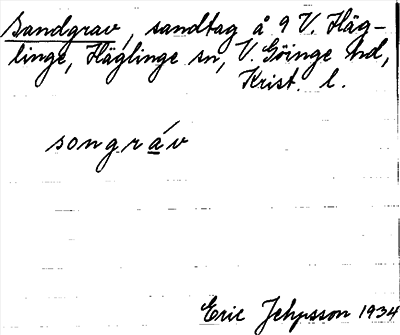 Sandgrav, sandtag å 9 V. Häg-
linge, Häglinge sn, V. Göinge hd,
Krist. l.
songráv
Eric Jehpsson 1934